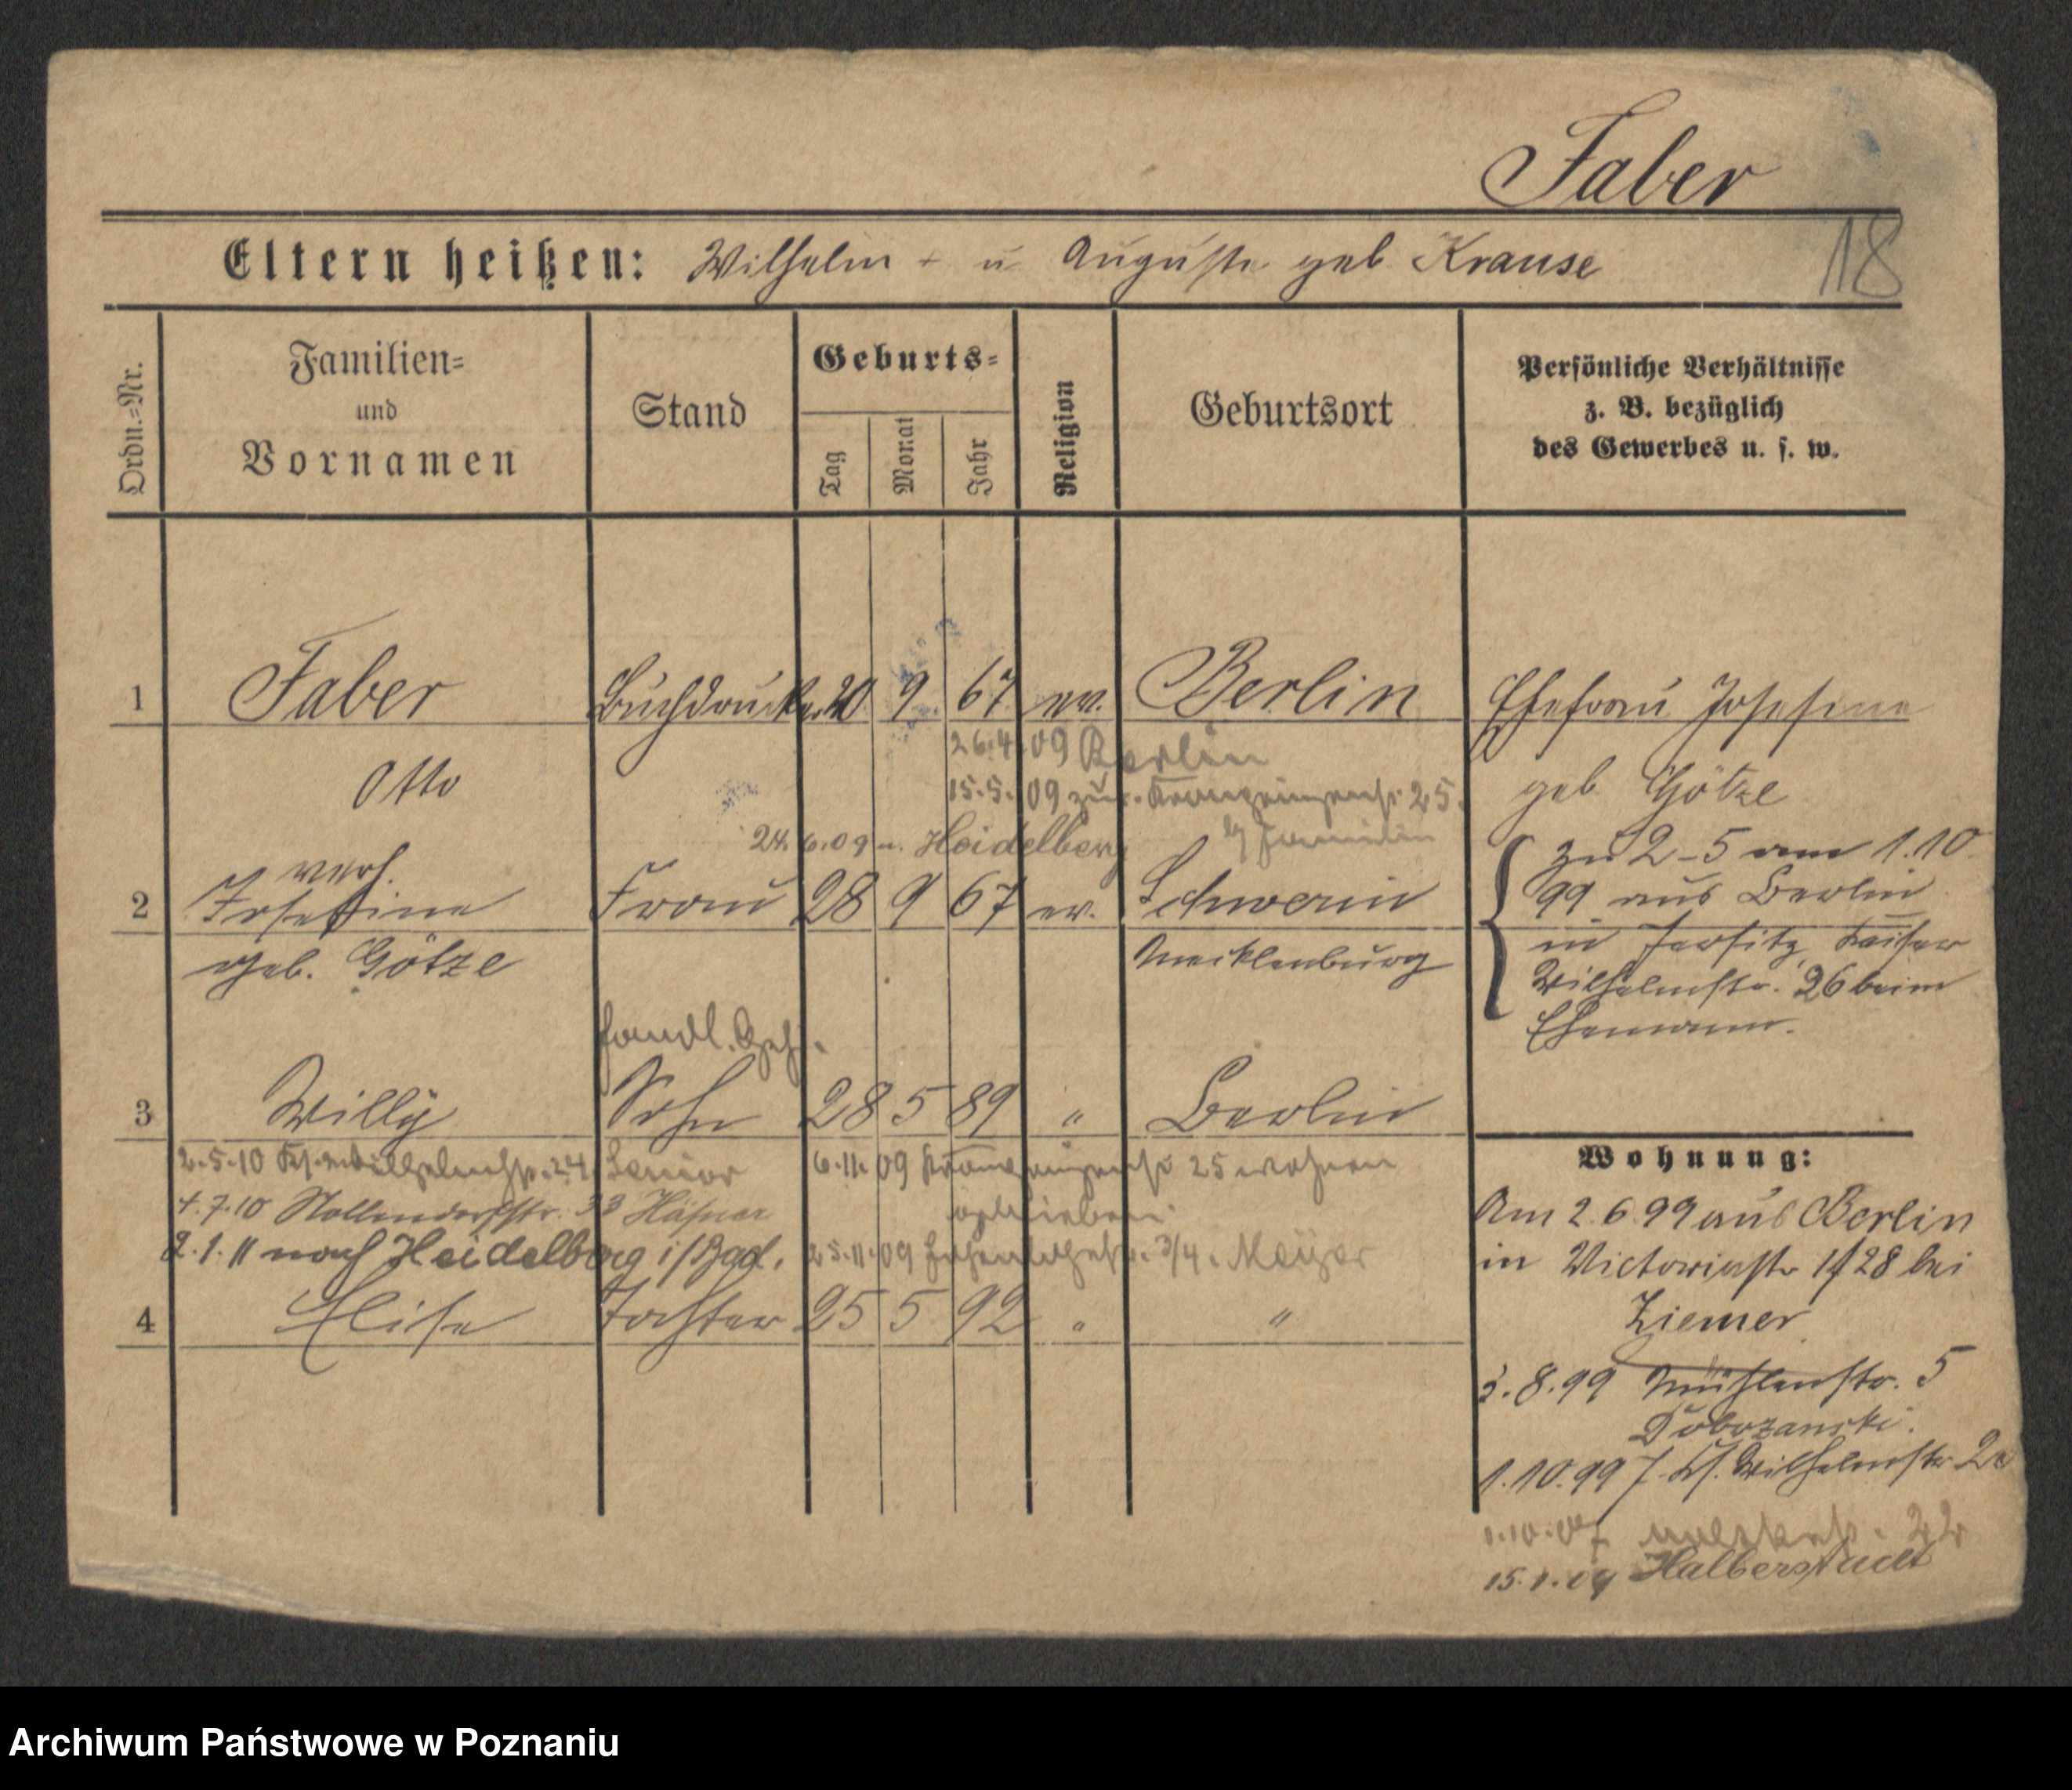 Faber
18
Eltern heißen: Wilhelm + u Auguste geb Krause
Ordn.=Nr.
Familien=
und
Vornamen
Stand
Geburts=
Tag
Monat
Jahr
Religion
Geburtsort
Persönliche Verhältnisse
z. B. bezüglich
des Gewerbes u. s. w.
1 Faber Buchdrucker 20 9 67 ev. Berlin Ehefrau Josefine
26.4.09 Berlin
Otto geb Götze
15.5.09 zur. 25.
24.6.09 n. Heidelberg b/ Familie
zu 2-5 am 1.10.
verh.
2 Josefine Frau 28 9 67 ev. Schwerin
99 aus Berlin
geb. Götze Mecklenburg
in Jersitz, Kaiser
Wilhelmstr. 26 beim
Ehemann.
Handl. Geh.
3 Willy Sohn 28 5 89 " Berlin
2.5.10 Ks. Wilhelmstr. 24. 6.11.09 25 wohnen
geblieben.
4.7.10 Nollendorfstr. 33 Häfner
2.1.11 nach Heidelberg 25.11.09 3/4. Meyer
4 Elise Tochter 25 5 92 " "
Wohnung:
Am 2.6.99 aus Berlin
in Victoriastr 28 bei
Ziemer
3.8.99 Mühlenstr. 5
1.10.99 J. Ks. Wilhelmstr
1.10.07 22
15.1.09 Halberstadt
Archiwum Państwowe w Poznaniu